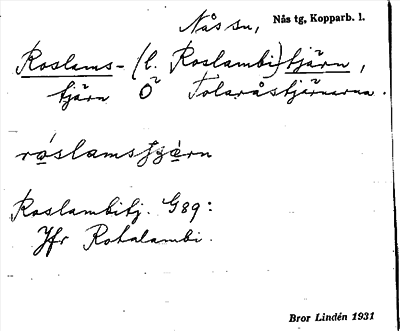 Nås sn, Nås tg, Kopparb. l.
Roslams- (l. Roslambi)tjärn,
tjärn Ö Tolaråstjärnarna.
Roslambitj. G89:
Jfr Rotalambi.
Bror Lindén 1931